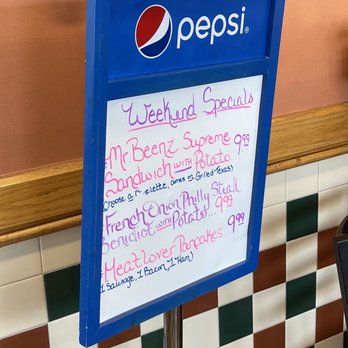 pepsi
Weekend Specials
#Mr. Beenz Supreme
Sandwich WITH Potato 9.99
(Choose a omes on Grilled Texas)
#French Onion Philly Steak
Benidict WITH Potato... 9.99
#Meat Lover Pancakes 9.99
(1 Sausage, 1 Bacon, 1-Ham)